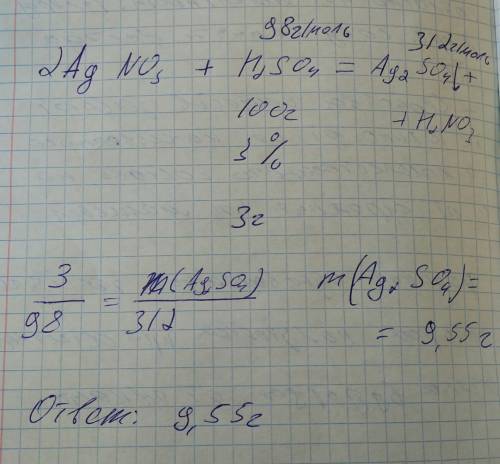 98г/моль
312г/моль
2AgNO3 + H2SO4 = Ag2SO4↓ +
+ H2NO3
100г
3%
3г
3/98 = m(Ag2SO4)/312
m(Ag2SO4) =
= 9,55г
Ответ: 9,55г